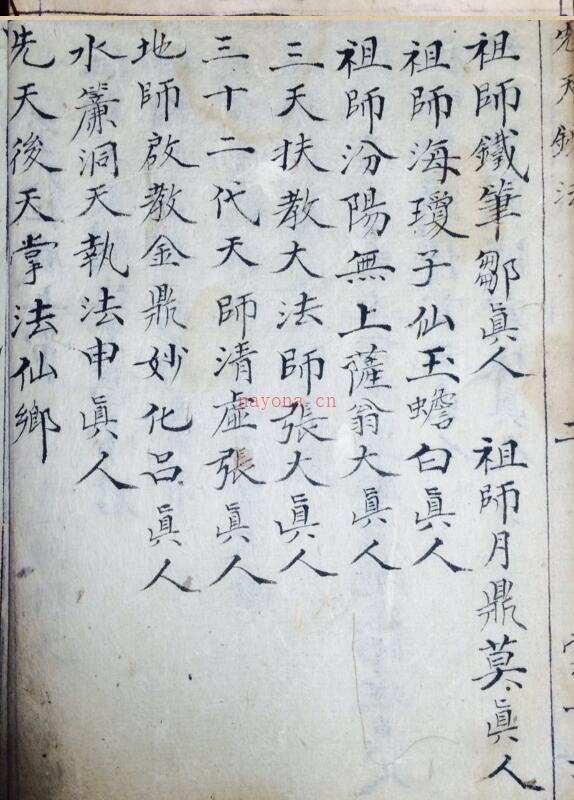 祖師鐵筆鄒眞人 祖師月鼎莫眞人
祖師海瓊子仙玉蟾白眞人
祖師汾陽無上薩翁大眞人
三天扶教大法師張大眞人
三十二代天師清虛張眞人
地師啟教金鼎妙化呂眞人
水簾洞天執法申眞人
先天後天掌法仙鄉
nayona.cn